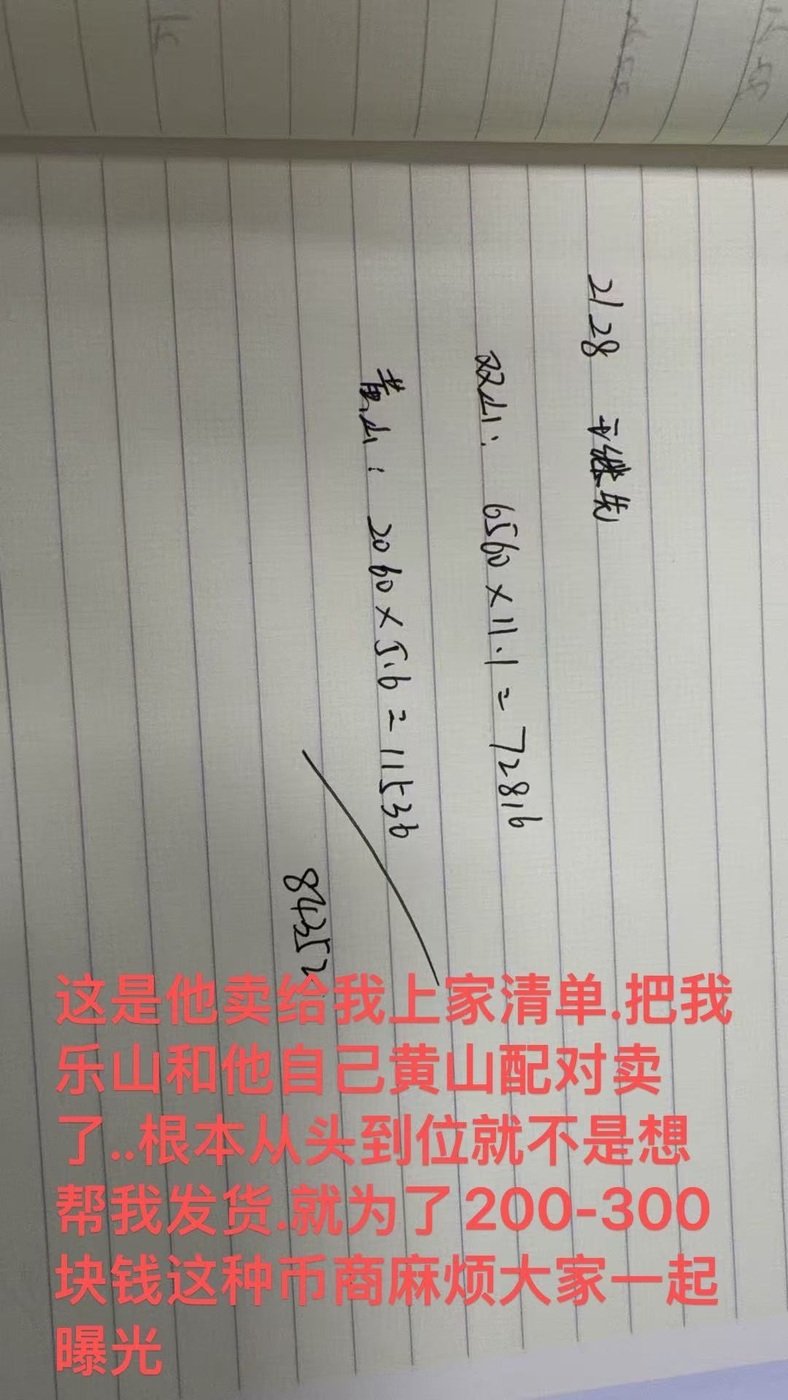 2/28 继先
双山: 6560×11.1=72816
黄山: 2060×5.6=11536
84352
这是他卖给我上家清单.把我
乐山和他自己黄山配对卖
了..根本从头到位就不是想
帮我发货.就为了200-300
块钱这种币商麻烦大家一起
曝光